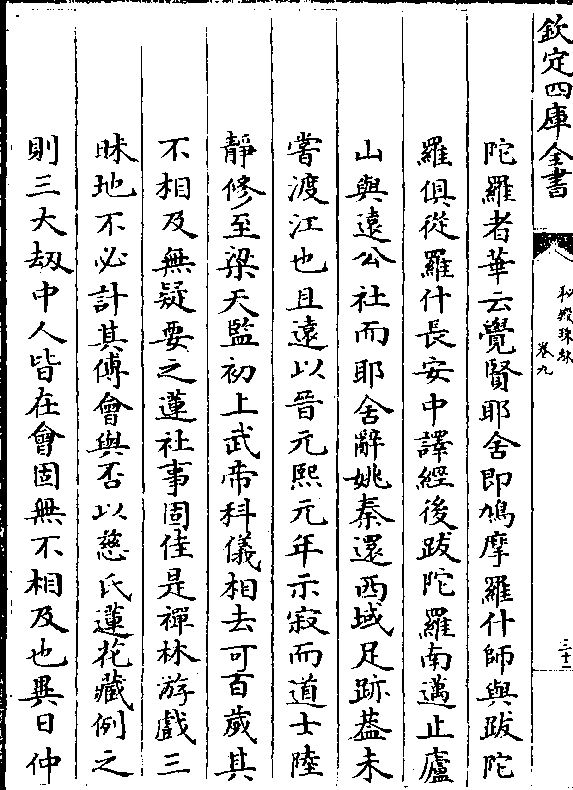 欽定四庫全書
秘殿珠林
卷九
三十二
陀羅者華云覺賢耶舍即鳩摩羅什師與跋陀
羅俱從羅什長安中譯經後跋陀羅南邁止廬
山與遠公社而耶舍辭姚秦還西域足跡葢未
嘗渡江也且遠以晉元熙元年示寂而道士陸
靜修至梁天監初上武帝科儀相去可百歲其
不相及無疑要之蓮社事固佳是禪林游戲三
昧地不必計其傅會與否以慈氏蓮花藏例之
則三大刼中人皆在會固無不相及也異日仲